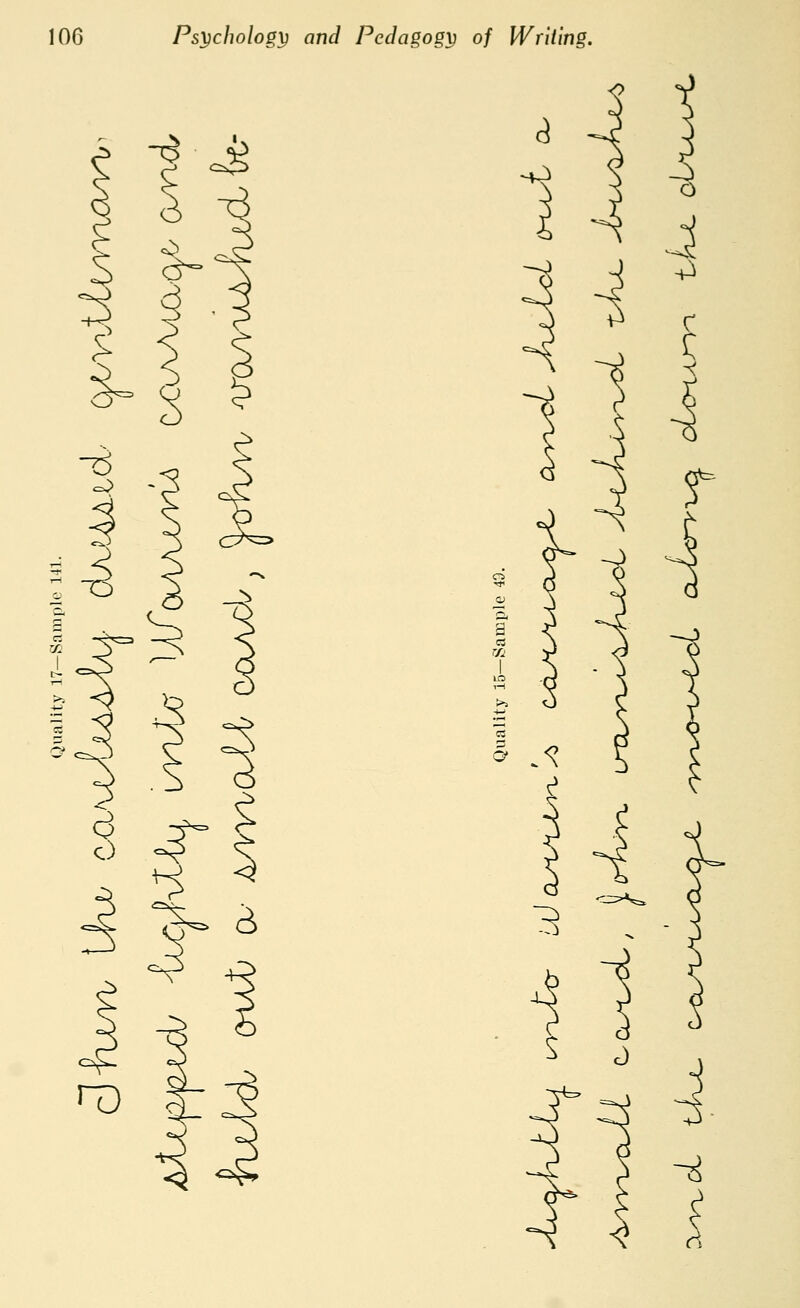 106 Psychology and Pedagogy of Writing.
Quality 17—Sample 141.
Then the carelessly dressed gentleman,
stepped lightly into Warren's carriage and
held out a small card, John vanished be-
Quality 15—Sample 49.
lightly into Warren's carriage and held out a
small card, John vanished behind the bushes
and the carriage moved along down the drive